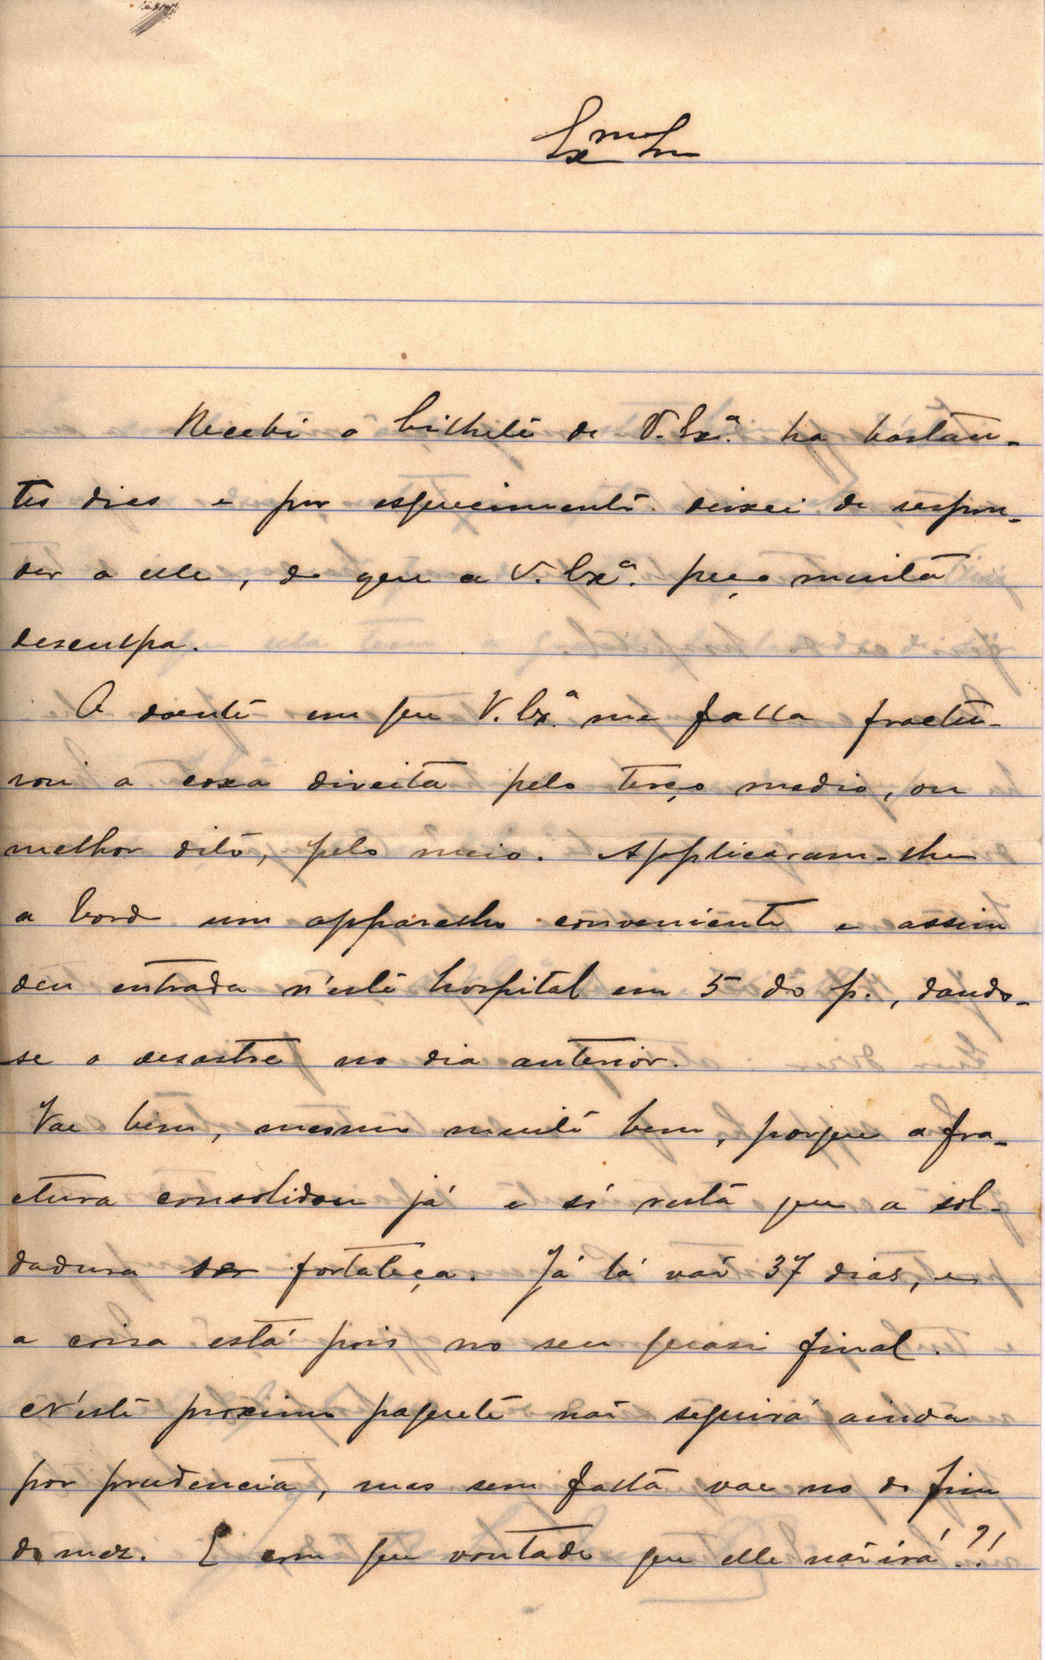 Exmo Sr
Recebi o bilhete de V. Exª. ha bastan-
tes dias e por esquecimento deixei de respon-
der a elle, do que a V. Exª. peço muita
desculpa.
O doente em que V. Exª me falla fractu-
rou a coxa direita pelo terço medio, ou
melhor dito, pelo meio. Applicaram-lhe
a bordo um apparelho conveniente e assim
deu entrada n'este hospital em 5 do p., dando-
se o desastre no dia anterior.
Vae bem, mesmo muito bem, porque a fra-
ctura consolidou já e só resta que a sol-
dadura se fortaleça. Já lá vão 37 dias, e
a coisa está pois no seu quasi final.
N'este proximo paquete não seguirá ainda
por prudencia, mas sem falta vae no do fim
do mez. E com que vontade que elle não irá?!